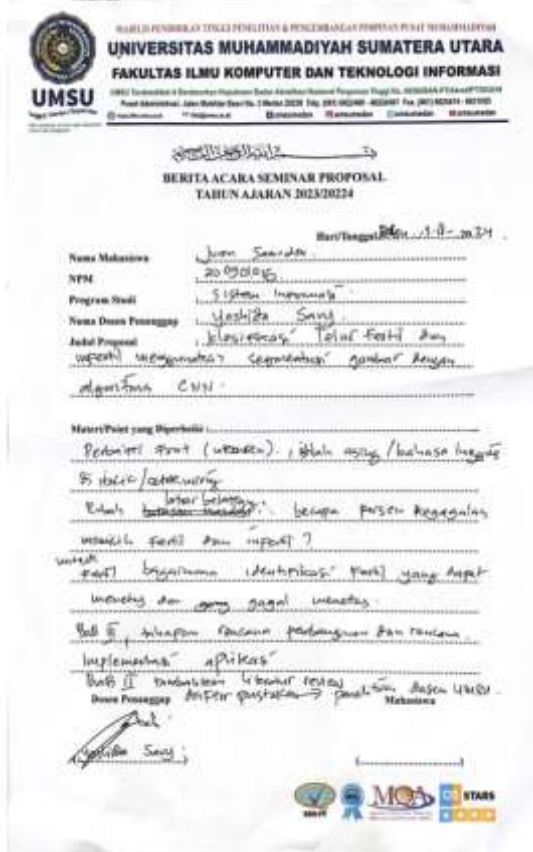 MAJELIS PENDIDIKAN TINGGI PENELITIAN & PENGEMBANGAN PIMPINAN PUSAT MUHAMMADIYAH
UNIVERSITAS MUHAMMADIYAH SUMATERA UTARA
FAKULTAS ILMU KOMPUTER DAN TEKNOLOGI INFORMASI
UMSU
BERITA ACARA SEMINAR PROPOSAL
TAHUN AJARAN 2023/20224
Hari/Tanggal
Nama Mahasiswa :
NPM :
Program Studi : Sistem Informasi
Nama Dosen Penanggap : Yoshida Sary
Judul Proposal : Klasifikasi Telur Fertil dan
infertil menggunakan segmentasi gambar dengan
algoritma CNN.
Materi/Point yang Diperbaiki :
Perbaiki font (ukuran), istilah asing/bahasa Inggris
cetak miring
Rubah latar belakang: berapa persen kegagalan
memilih fertil dan infertil?
untuk
fertil bagaimana identifikasi fertil yang dapat
menetas dan yang gagal menetas.
Bab III, tahapan rancana pembangunan dan rancana
implementasi aplikasi
Bab II tambahkan literatur review
Daftar pustaka → penelitian dosen UMSU.
Dosen Penanggap
Mahasiswa
Yoshida Sary
MQA
STARS